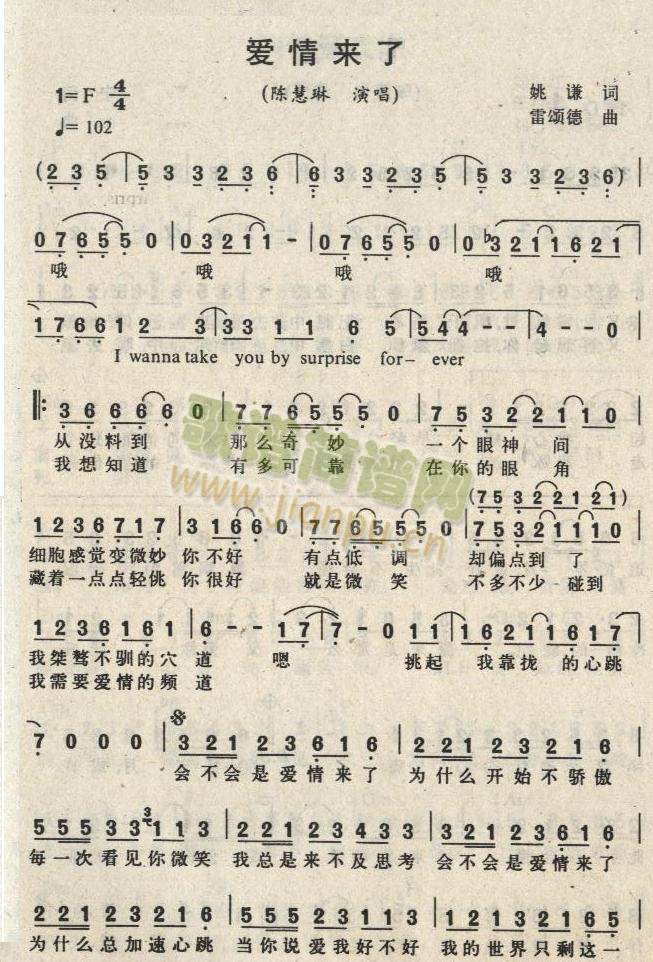 爱情来了
1=F 4/4
(陈慧琳 演唱)
姚谦 词
♩=102
雷颂德 曲
(2 3 5 5 3 3 2 3 6 6 3 3 2 3 5 5 3 3 2 3 6) |
0 7 6 5 5 0 | 0 3 2 1 1 - | 0 7 6 5 5 0 | 0 ♭3 2 1 1 6 2 1 |
哦 哦 哦 哦
1 7 6 6 1 2 3 3 3 1 1 6 5 | 5 4 4 4 - - | 4 - - 0 |
I wanna take you by surprise for- ever
‖: 3 6 6 6 6 0 | 7 7 6 5 5 5 0 | 7 5 3 2 2 1 1 0 |
从没料到 那么奇妙 一个眼神间
我想知道 有多可靠 在你的眼角
(7 5 3 2 2 1 2 1)
1 2 3 6 7 1 7 | 3 1 6 6 0 | 7 7 6 5 5 5 0 | 7 5 3 2 1 1 1 0 |
细胞感觉变微妙 你不好 有点低调 却偏点到了
藏着一点点轻佻 你很好 就是微笑 不多不少-碰到
1 2 3 6 1 6 1 | 6 - - 1 7 | 7 - 0 1 1 | 1 6 2 1 1 6 1 7 |
我桀骜不驯的穴道 嗯 挑起 我靠拢的心跳
我需要爱情的频道
7 0 0 0 | 3 2 1 2 3 6 1 6 | 2 2 1 2 3 2 1 6 |
会不会是爱情来了 为什么开始不骄傲
5 5 5 3 3 3 1 1 3 | 2 2 1 2 3 4 3 3 | 3 2 1 2 3 6 1 6 |
每一次看见你微笑 我总是来不及思考 会不会是爱情来了
2 2 1 2 3 2 1 6 | 5 5 5 2 3 1 1 3 | 2 2 1 1 2 1 6 5 |
为什么总加速心跳 当你说爱我好不好 我的世界只剩这一
歌谱简谱网
www.jianpu.cn